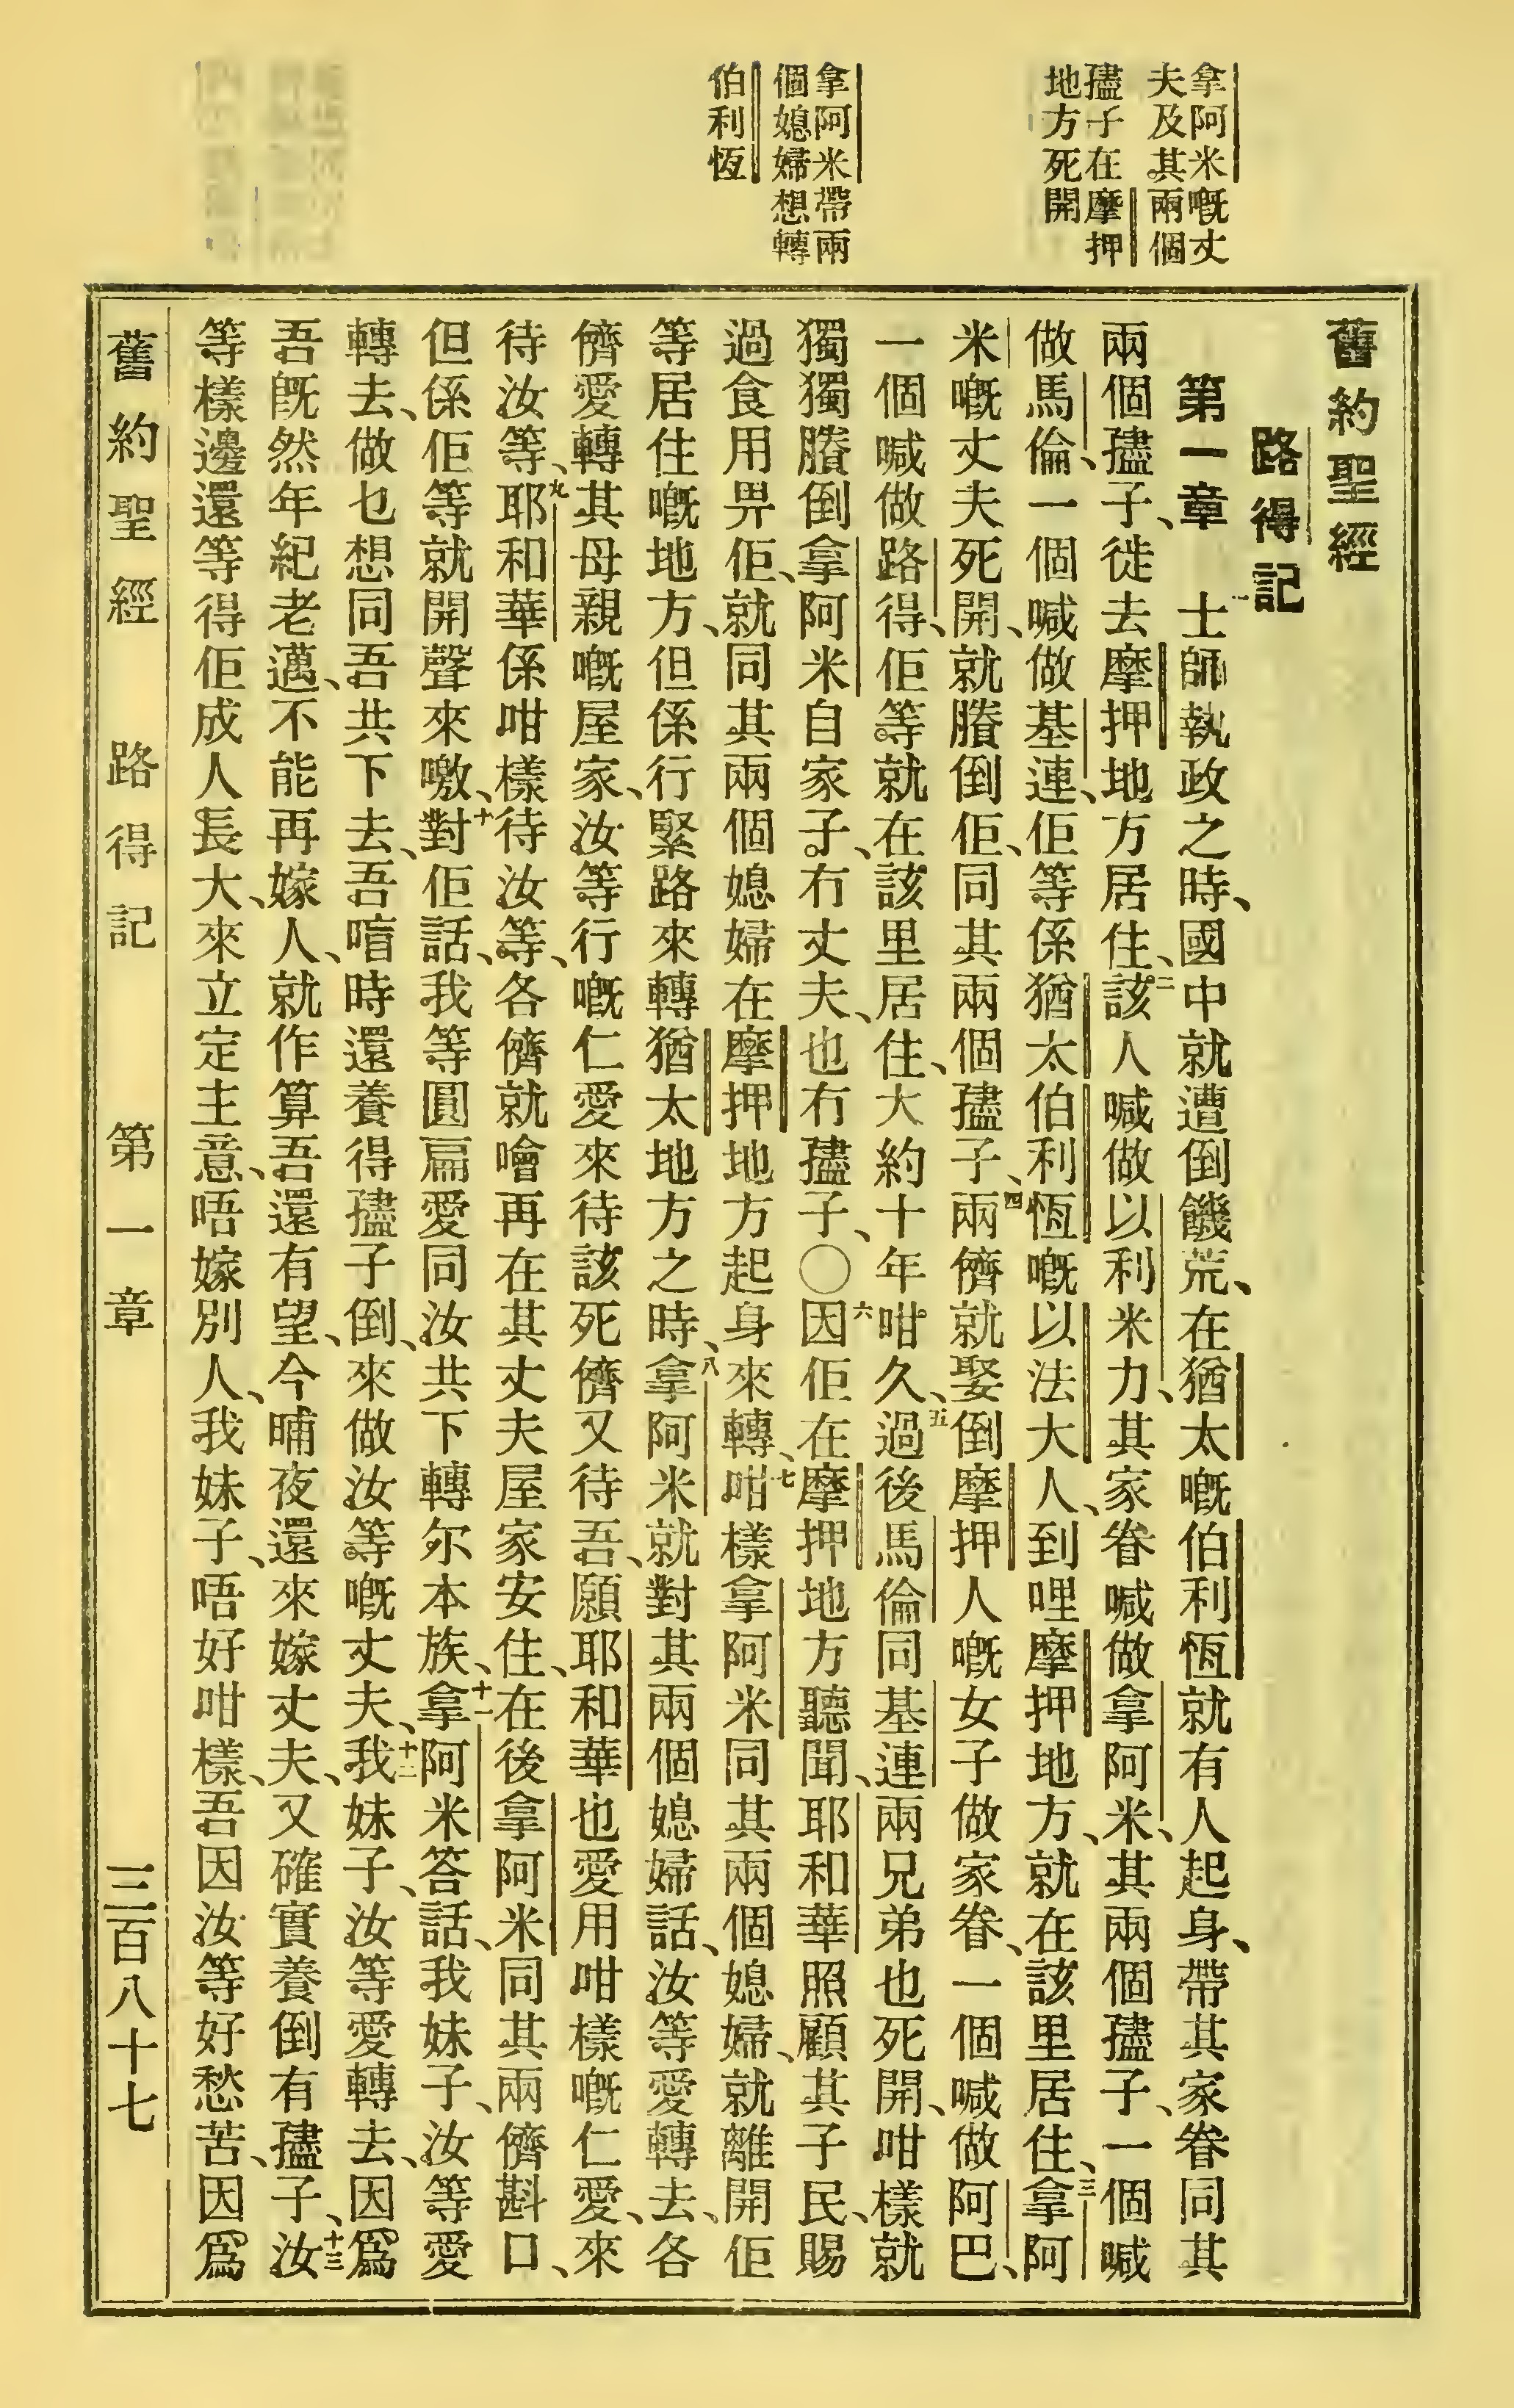 拿阿米嘅丈
夫及其兩個
𡥧子在摩押
地方死開
拿阿米帶兩
個媳婦想轉
伯利恆
舊約聖經
路得記
第一章 士師執政之時、國中就遭倒饑荒、在猶太嘅伯利恆就有人起身、帶其家眷同其
兩個𡥧子、徙去摩押地方居住、二該人喊做以利米力、其家眷喊做拿阿米、其兩個𡥧子、一個喊
做馬倫、一個喊做基連、佢等係猶太伯利恆嘅以法大人、到哩摩押地方、就在該里居住、三拿阿
米嘅丈夫死開、就賸倒佢、同其兩個𡥧子、四兩儕就娶倒摩押人嘅女子做家眷、一個喊做阿巴、
一個喊做路得、佢等就在該里居住、大約十年咁久、五過後馬倫同基連兩兄弟也死開、咁樣就
獨獨賸倒拿阿米自家子、冇丈夫、也冇𡥧子、〇六因佢在摩押地方聽聞、耶和華照顧其子民、賜
過食用畀佢、就同其兩個媳婦在摩押地方起身來轉、七咁樣拿阿米同其兩個媳婦、就離開佢
等居住嘅地方、但係行緊路來轉猶太地方之時、八拿阿米就對其兩個媳婦話、汝等愛轉去、各
儕愛轉其母親嘅屋家、汝等行嘅仁愛來待該死儕又待吾、願耶和華也愛用咁樣嘅仁愛、來
待汝等、九耶和華係咁樣待汝等、各儕就噲再在其丈夫屋家安住、在後拿阿米同其兩儕斟口、
但係佢等就開聲來噭、十對佢話、我等圓扁愛同汝共下轉尔本族、十一拿阿米答話、我妹子、汝等愛
轉去、做乜想同吾共下去、吾喑時還養得𡥧子倒、來做汝等嘅丈夫、十二我妹子、汝等愛轉去、因爲
吾既然年紀老邁、不能再嫁人、就作算吾還有望、今晡夜還來嫁丈夫、又確實養倒有𡥧子、十三汝
等樣邊還等得佢成人長大、來立定主意、唔嫁別人、我妹子、唔好咁樣、吾因汝等好愁苦、因爲
舊約聖經 路得記 第一章 三百八十七